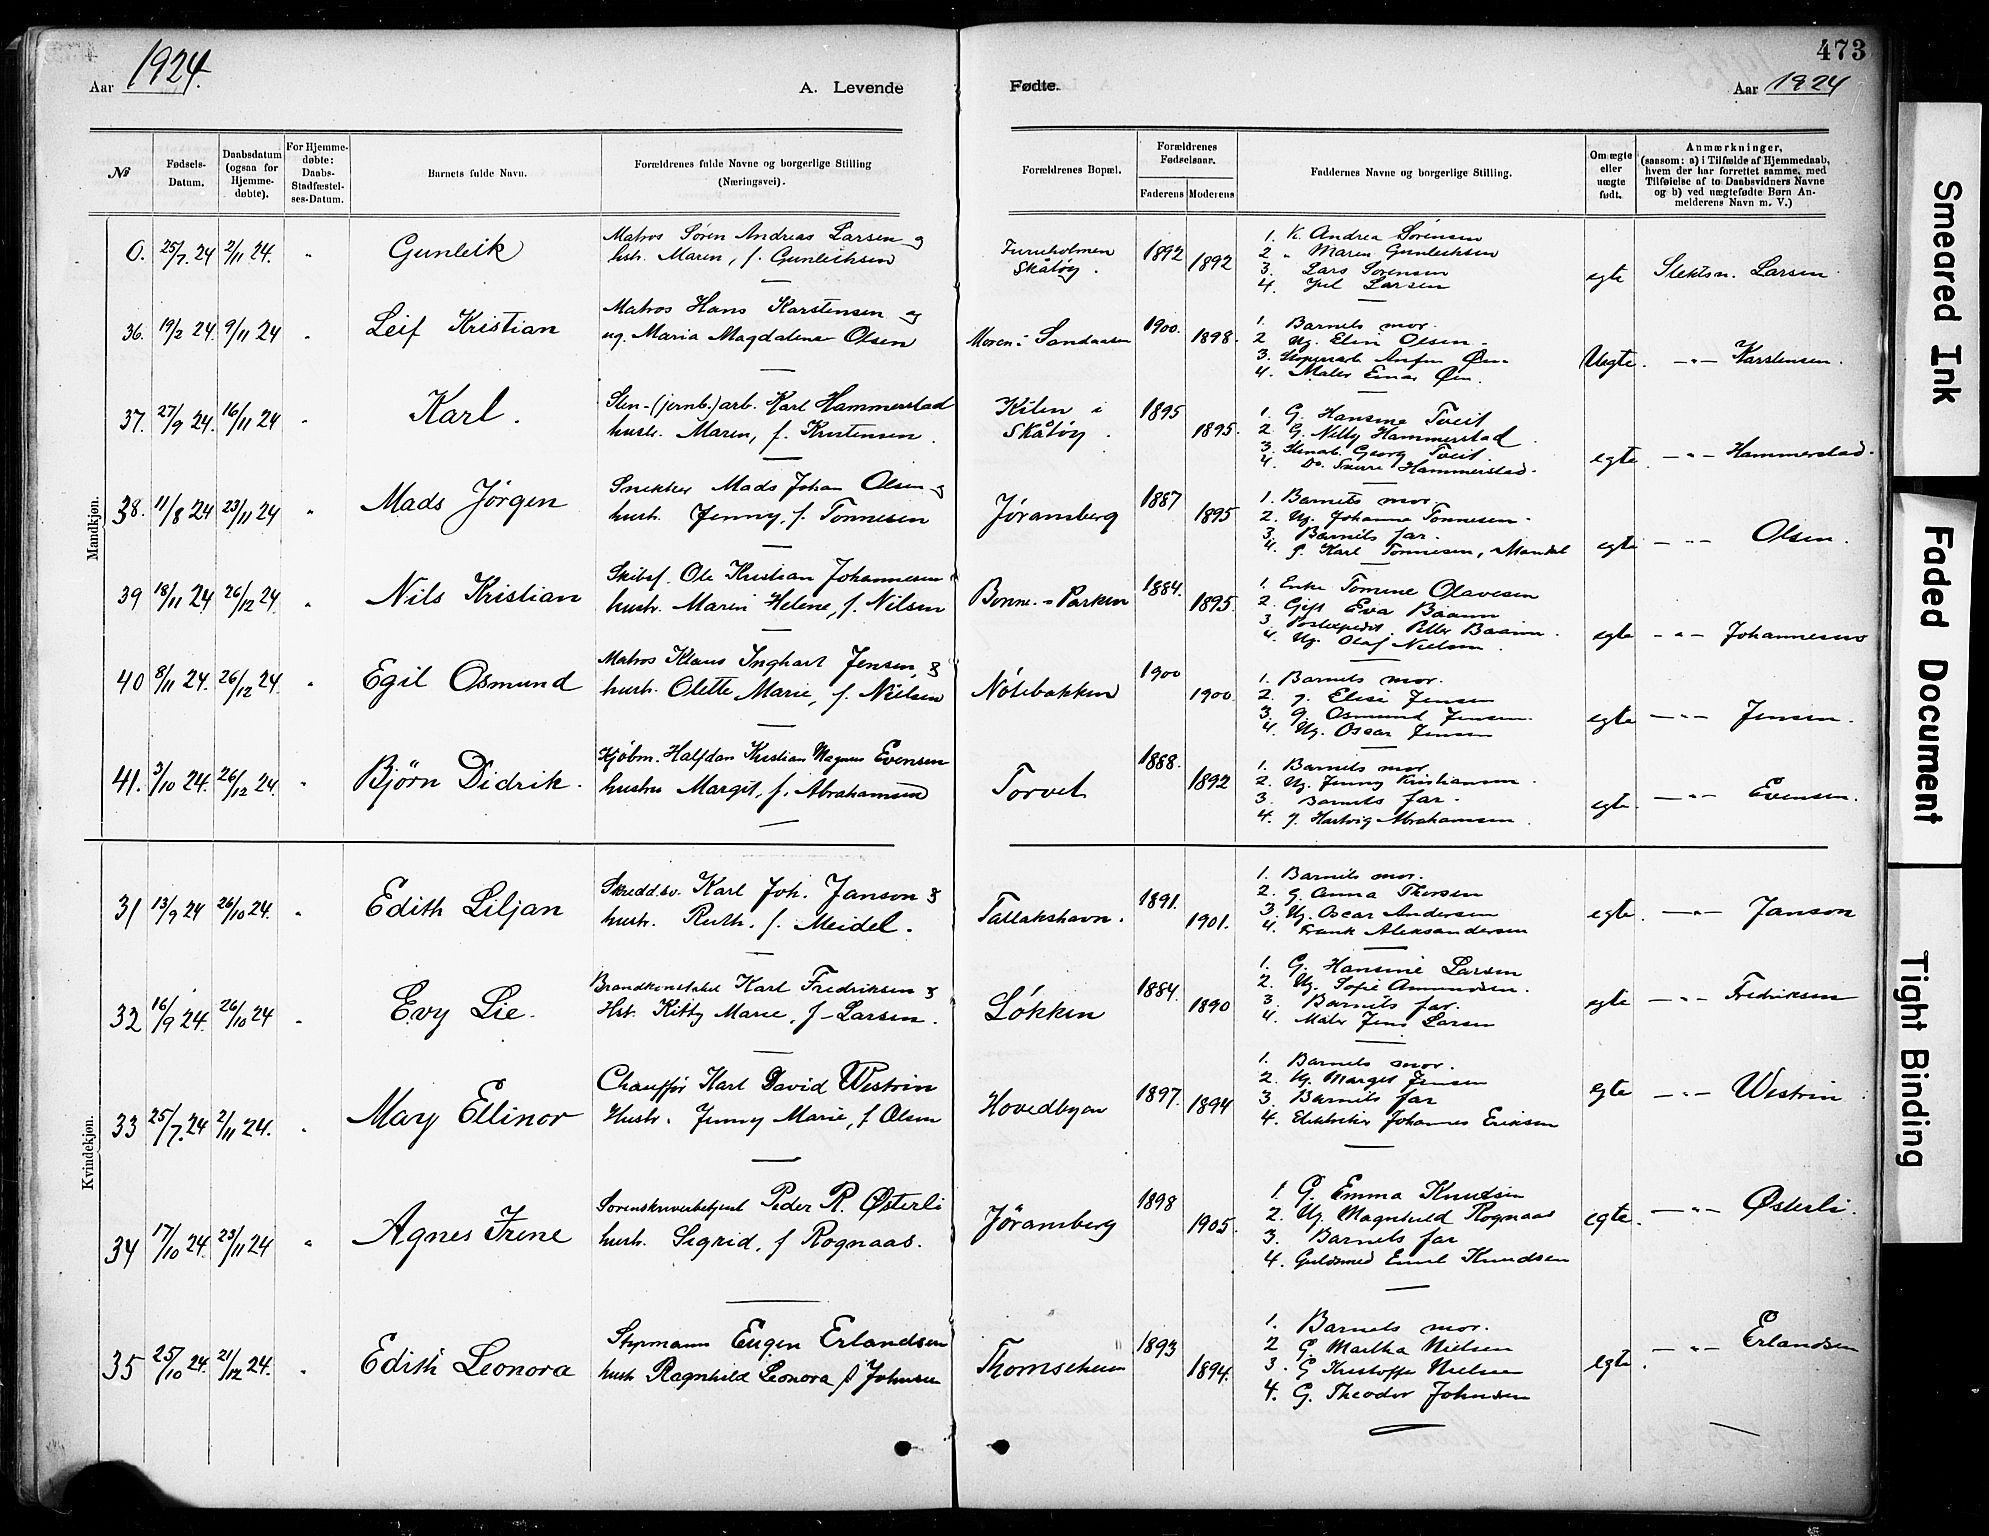 473
Aar 1924.
A. Levende
Fødte.
Aar 1924
№
Fødsels-Datum.
Daabsdatum (ogsaa for Hjemmedøbte).
For Hjemmedøbte: Daabs-Stadfæstelses-Datum.
Barnets fulde Navn.
Forældrenes fulde Navne og borgerlige Stilling (Næringsvei).
Forældrenes Bopæl.
Forældrenes Fødselsaar.
Faderens
Moderens
Faddernes Navne og borgerlige Stilling.
Om ægte eller uægte født.
Anmærkninger,
(saasom: a) i Tilfælde af Hjemmedaab,
hvem der har forrettet samme, med
Tilføielse af to Daabsvidners Navne
og b) ved uægtefødte Børn Anmelderens Navn m. V.)
Mandkjøn.
0. 25/7.24 2/11 24. " Gunleik
Matros Søren Andreas Larsen og
hstr. Maren, f. Gunleiksen
Furuholmen
Skåtøy.
1892 1892
1. K. Andrea Sørensen
2 " Maren Gunleiksen
3. Lars Sørensen
4. Juel Larsen
egte Slektsn. Larsen
36. 19/2 24. 9/11 24 " Leif Kristian
Matros Hans Karstensen og
ug. Maria Magdalena Olsen
Moren: Sandaasen
1900. 1898.
1. Barnets mor.
2 Ug. Elin Olsen.
3. Øen
4. Maler Einar Øen.
Uegte. — " — Karstensen.
37. 27/9 24. 16/11 24 " Karl.
Sten-(jernb.) arb. Karl Hammerstad
hustr. Maren, f. Kristensen.
Kilen i
Skåtøy.
1895 1895.
1. G. Hansine Tveit
2. G. Nelly Hammerstad
3. Georg Tveit
4. Do. Hammerstad.
egte — " — Hammerstad.
38. 11/8 24 23/11 24 " Mads Jørgen
Snekker Mads Johan Olsen og
hustr. Jenny, f. Tønnesen
Jøransberg
1887 1895
1. Barnets mor.
2. Ug. Johanna Tønnesen.
3. Barnets far.
4. J. Karl Tønnesen, Mandal
egte — " — Olsen.
39 18/11 24 26/12 24. " Nils Kristian
Skibsf. Ole Kristian Johannesen
hustr. Marin Helene, f. Nilsen
Bonne. - Parken
1884. 1895.
1. Enke Tomine Olavesen
2. Gift Eva Baann
3 Postexpedit Peter Baann.
4. Ug. Olaf Nielsen.
egte — " — Johannesen
40 8/11 24. 26/12 24. " Egil Osmund
Matros Klaus Inghart Jensen, &
hustr. Olette Marie, f. Nielsen
Nøtebakken
1900 1900.
1. Barnets mor.
2. J. Elise Jensen
3. G. Osmund Jensen.
4. Ug. Oscar Jensen
egte — " — Jensen.
41. 3/10 24. 26/12 24. " Bjørn Didrik.
Kjøbm. Halfdan Kristian Magnus Evensen
hustru Margit, f. Abrahamsen
Torvet
1888. 1892
1. Barnets mor
2. Ug. Jenny Kristiansen.
3. Barnets far.
4. J. Hartvig Abrahamsen.
egte. — " — Evensen.
Kvindekjøn.
31 13/9 24 26/10 24. " Edith Liljan
Skredds. Karl Joh. Janson &
hustr. Ruth, f. Meidel.
Tallakshavn.
1891. 1901.
1. Barnets mor.
2. G. Anna Thorsen
3. Ug. Oscar Andersen
4. Frank Aleksandersen
egte. — " — Janson
32 16/9 24. 26/10 24 " Evy Lie.
Brandkonstabel Karl Fredriksen &
Hst. Kitty Marie, f. Larsen.
Løkken
1884. 1890
1. G. Hansine Larsen
2. Ug. Sofie Amundsen.
3. Barnets far.
4. Maler Jens Larsen
egte — " — Fredriksen
33 25/7.24 2/11 24. " Mary Ellinor
Chauffør Karl David Westrin
Hustr. Jenny Marie, f. Olsen
Hovedbyen
1897. 1894
1. Barnets mor.
2. Ug. Margit Jensen
3. Barnets far
4. Elektriker Johannes Eriksen
egte — " — Westrin
34 17/10 24. 23/11 24 " Agnes Irene
Sorenskriverbetjent Peder R. Østerli
hustr. Sigrid, f. Rognaas.
Jøransberg
1898 1905.
1. G. Emma Knudsen
2. Ug. Magnhild Rognaas
3. Barnets far
4. Guldsmed Emil Knudsen
egte. — " — Østerli.
35 25/10 24. 21/12 24. " Edith Leonora
Styrmann Eugen Erlandsen
hustr Ragnhild Leonora f. Johnsen
Thomsehein
1893 1894.
1. Barnets mor.
2 G. Martha Nielsen
3. G. Kristoffer Nielsen
4. G. Theodor Johnsen
egte. — " — Erlandsen
Smeared Ink
Faded Document
Tight Binding